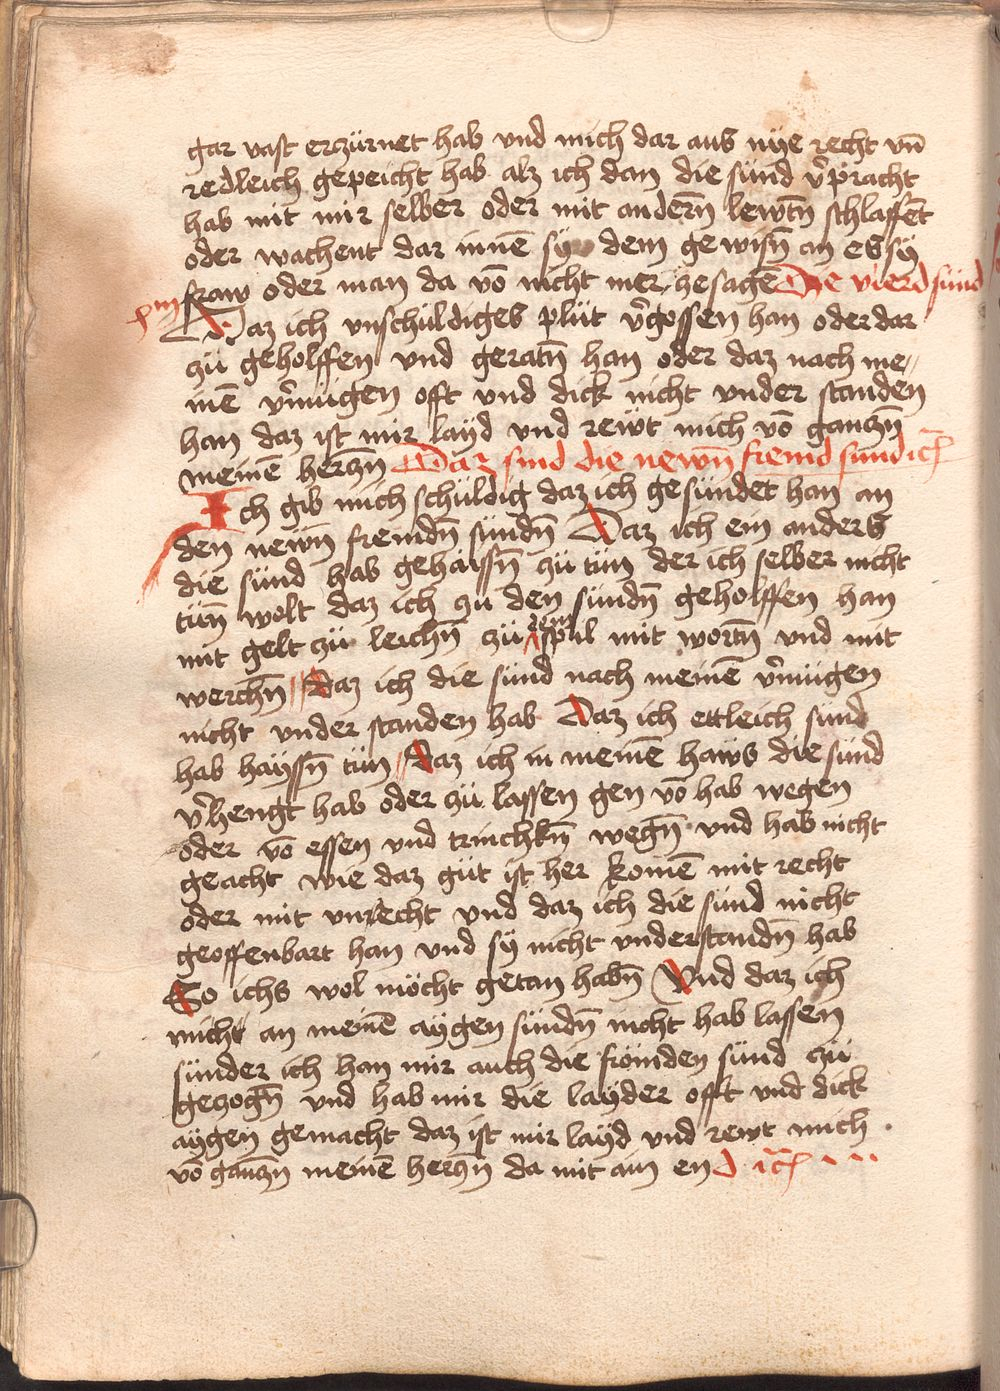 gar vast erzürnet hab vnd mich dar aus nÿe recht vn̄
redleich gepeicht hab alz ich dan die sünd v̉pracht
hab mit mir selber oder mit andern̄ lewtn̄ schlaffent
oder wachent dar innē sÿ dem gewisn̄ an es sÿ
fraw oder man da vō nicht mer ze sagē Die vierd sünd
Daz ich vnschuldiges plüt v̉gossen han oder dar
zü geholffen vnd geratn̄ han oder daz nach me//
inē v̉mügen offt vnd dick nicht vnder standen
han daz ist mir layd vnd rewt mich vō ganczn̄
meinē herczn̄ Daz sind die newn̄ fremd sünd
Ich gib mich schüldig daz ich gesündet han an
den newn̄ fremdn̄ sündn̄ Daz ich ein anders
die sünd hab gehaissn̄ zü tün der ich selber nicht
tün̄ wolt daz ich zu den sündn̄ geholffen han
mit gelt zü leichn̄ zü dem spil mit wortn̄ vnd mit
werchn̄ // daz ich die sünd nach meinē v̉mügen
nicht vnder standen hab Daz ich ettleich sünd
hab hayssn̄ tün // daz ich in meinē haws die sünd
v̉hengt hab oder zü lassen gen vō hab wegen
oder vō essen vnd trinchkn̄ wegn̄ vnd hab nicht
geacht wie daz güt ist her komē mit recht
oder mit vnrecht vnd daz ich die sünd nicht
geoffenbart han vnd sÿ nicht vnderstandn̄ hab
So ichs wol möcht getan habn̄ Vnd daz ich
mich an meinē aÿgen sündn̄ nicht hab lassen
sünder ich han mir auch die frömden sünd zü
geczogn̄ vnd hab mir die laÿder offt vnd dick
aÿgen gemacht daz ist mir laÿd vnd rewt mich .
vō ganczn̄ meinē herczn̄ da mit ain end